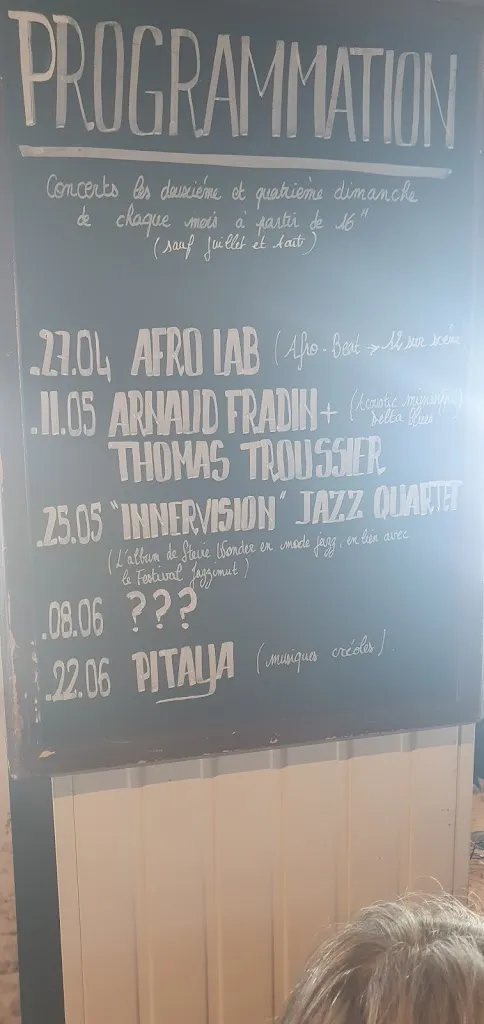 PROGRAMMATION
Concerts les deuxième et quatrième dimanche
de chaque mois à partir de 16H
(sauf juillet et août)
.27.04 AFRO LAB (Afro-Beat → 12 sur scène
.11.05 ARNAUD FRADIN + (Acoustic mississippi
Delta blues
THOMAS TROUSSIER
.25.05 "INNERVISION" JAZZ QUARTET
(L'album de Stevie Wonder en mode jazz, en lien avec
le Festival Jazzimut)
.08.06 ???
.22.06 PITALYA (musiques créoles).